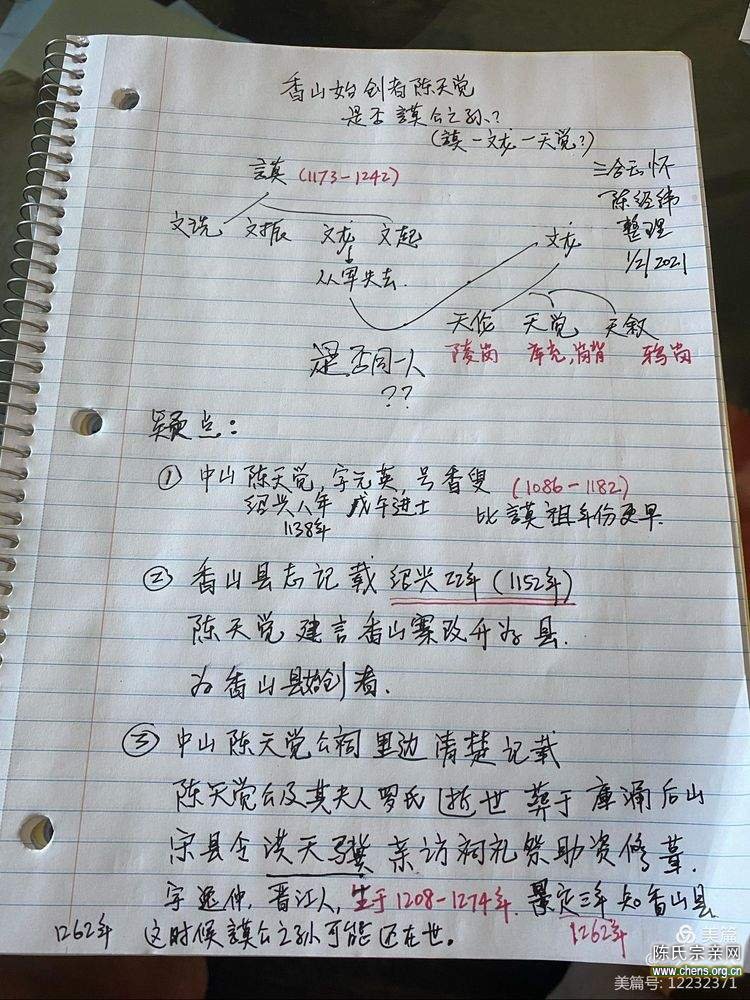 香山始创者陈天觉
是否謨公之孙?
(謨一文龙一天觉?)
謨 (1173-1242)
三合云怀
陈经纬
整理
1/2/2021
文说 文振 文龙 文起
文龙
从军失去.
天伦 天觉 天叙
陵岗 库充,岗背 鸦岗
是否同一人
??
疑点:
① 中山陈天觉,字元英,号香叟 (1086-1182)
绍兴八年 戊午进士 比謨祖年份更早.
1138年
② 香山县志记载绍兴22年(1152年)
陈天觉建言香山寨改升为县.
为香山县始创者.
③ 中山陈天觉公祠里边清楚记载
陈天觉公及其夫人罗氏逝世葬于库涌后山
宋县令洪天骥亲访祠礼祭助资修葺.
字逸仲,晋江人,生于1208-1274年.景定三年知香山县
1262年
1262年 这时候謨公之孙可能还在世。
美篇
陈氏宗亲网
www.chens.org.cn
美篇号: 12232371